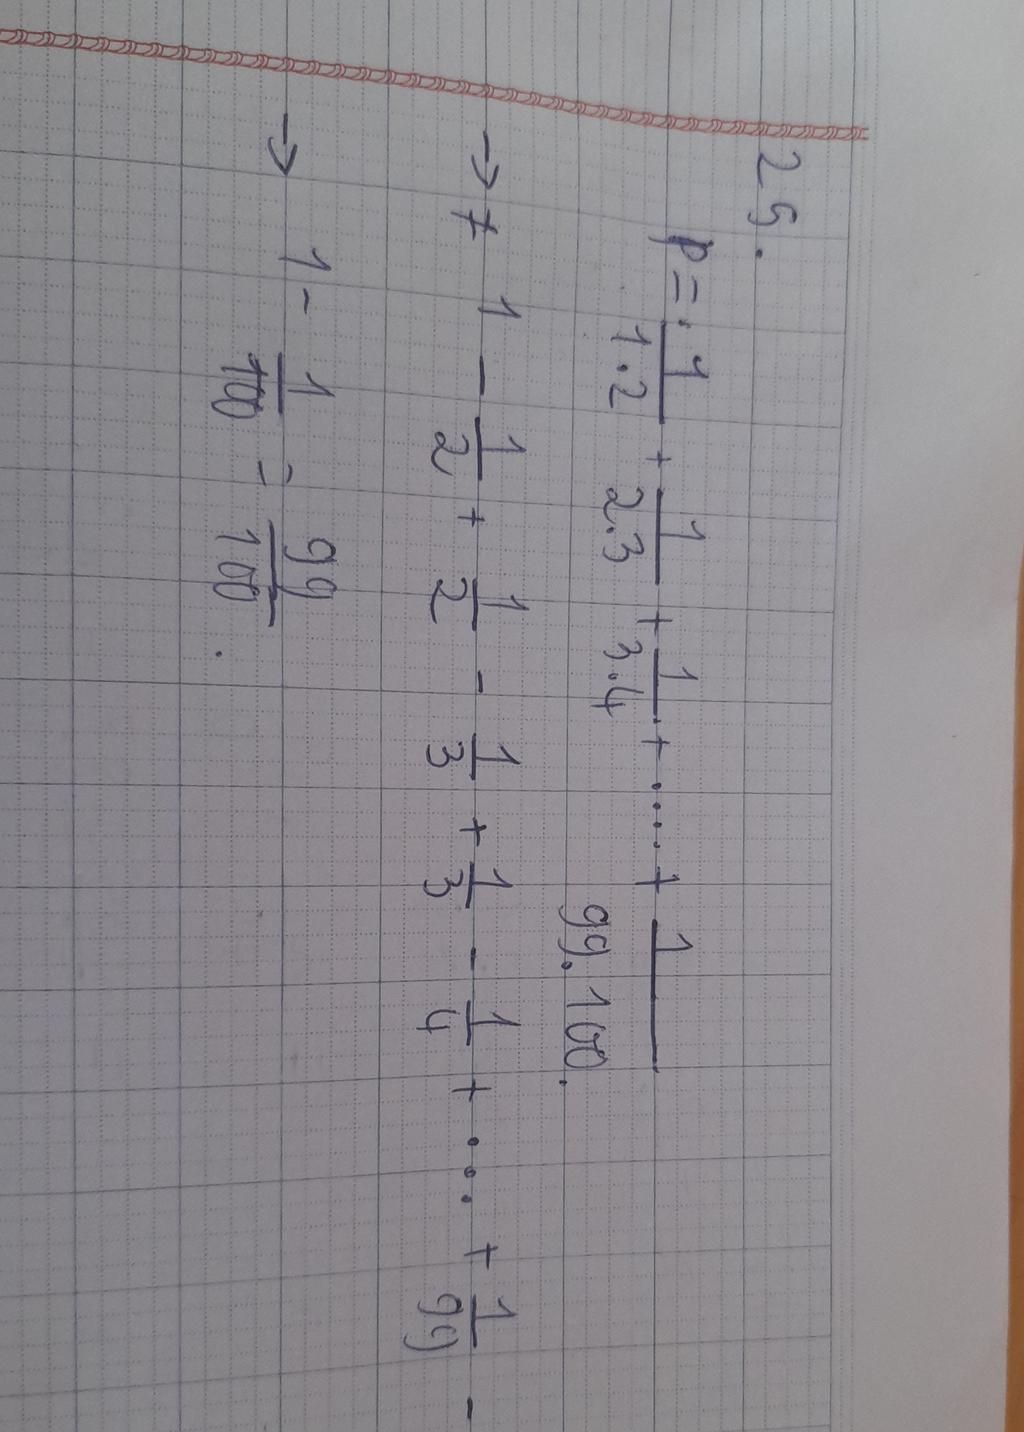 25.
P = 1/1.2 + 1/2.3 + 1/3.4 + .... + 1/99.100.
→ 1 - 1/2 + 1/2 - 1/3 + 1/3 - 1/4 + ... + 1/99 -
→ 1 - 1/100 = 99/100.